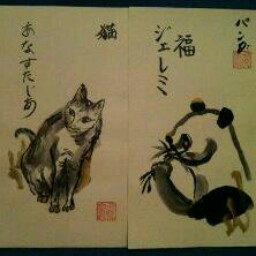 猫
あなすたしあ
パンダ
福
ジェレミ